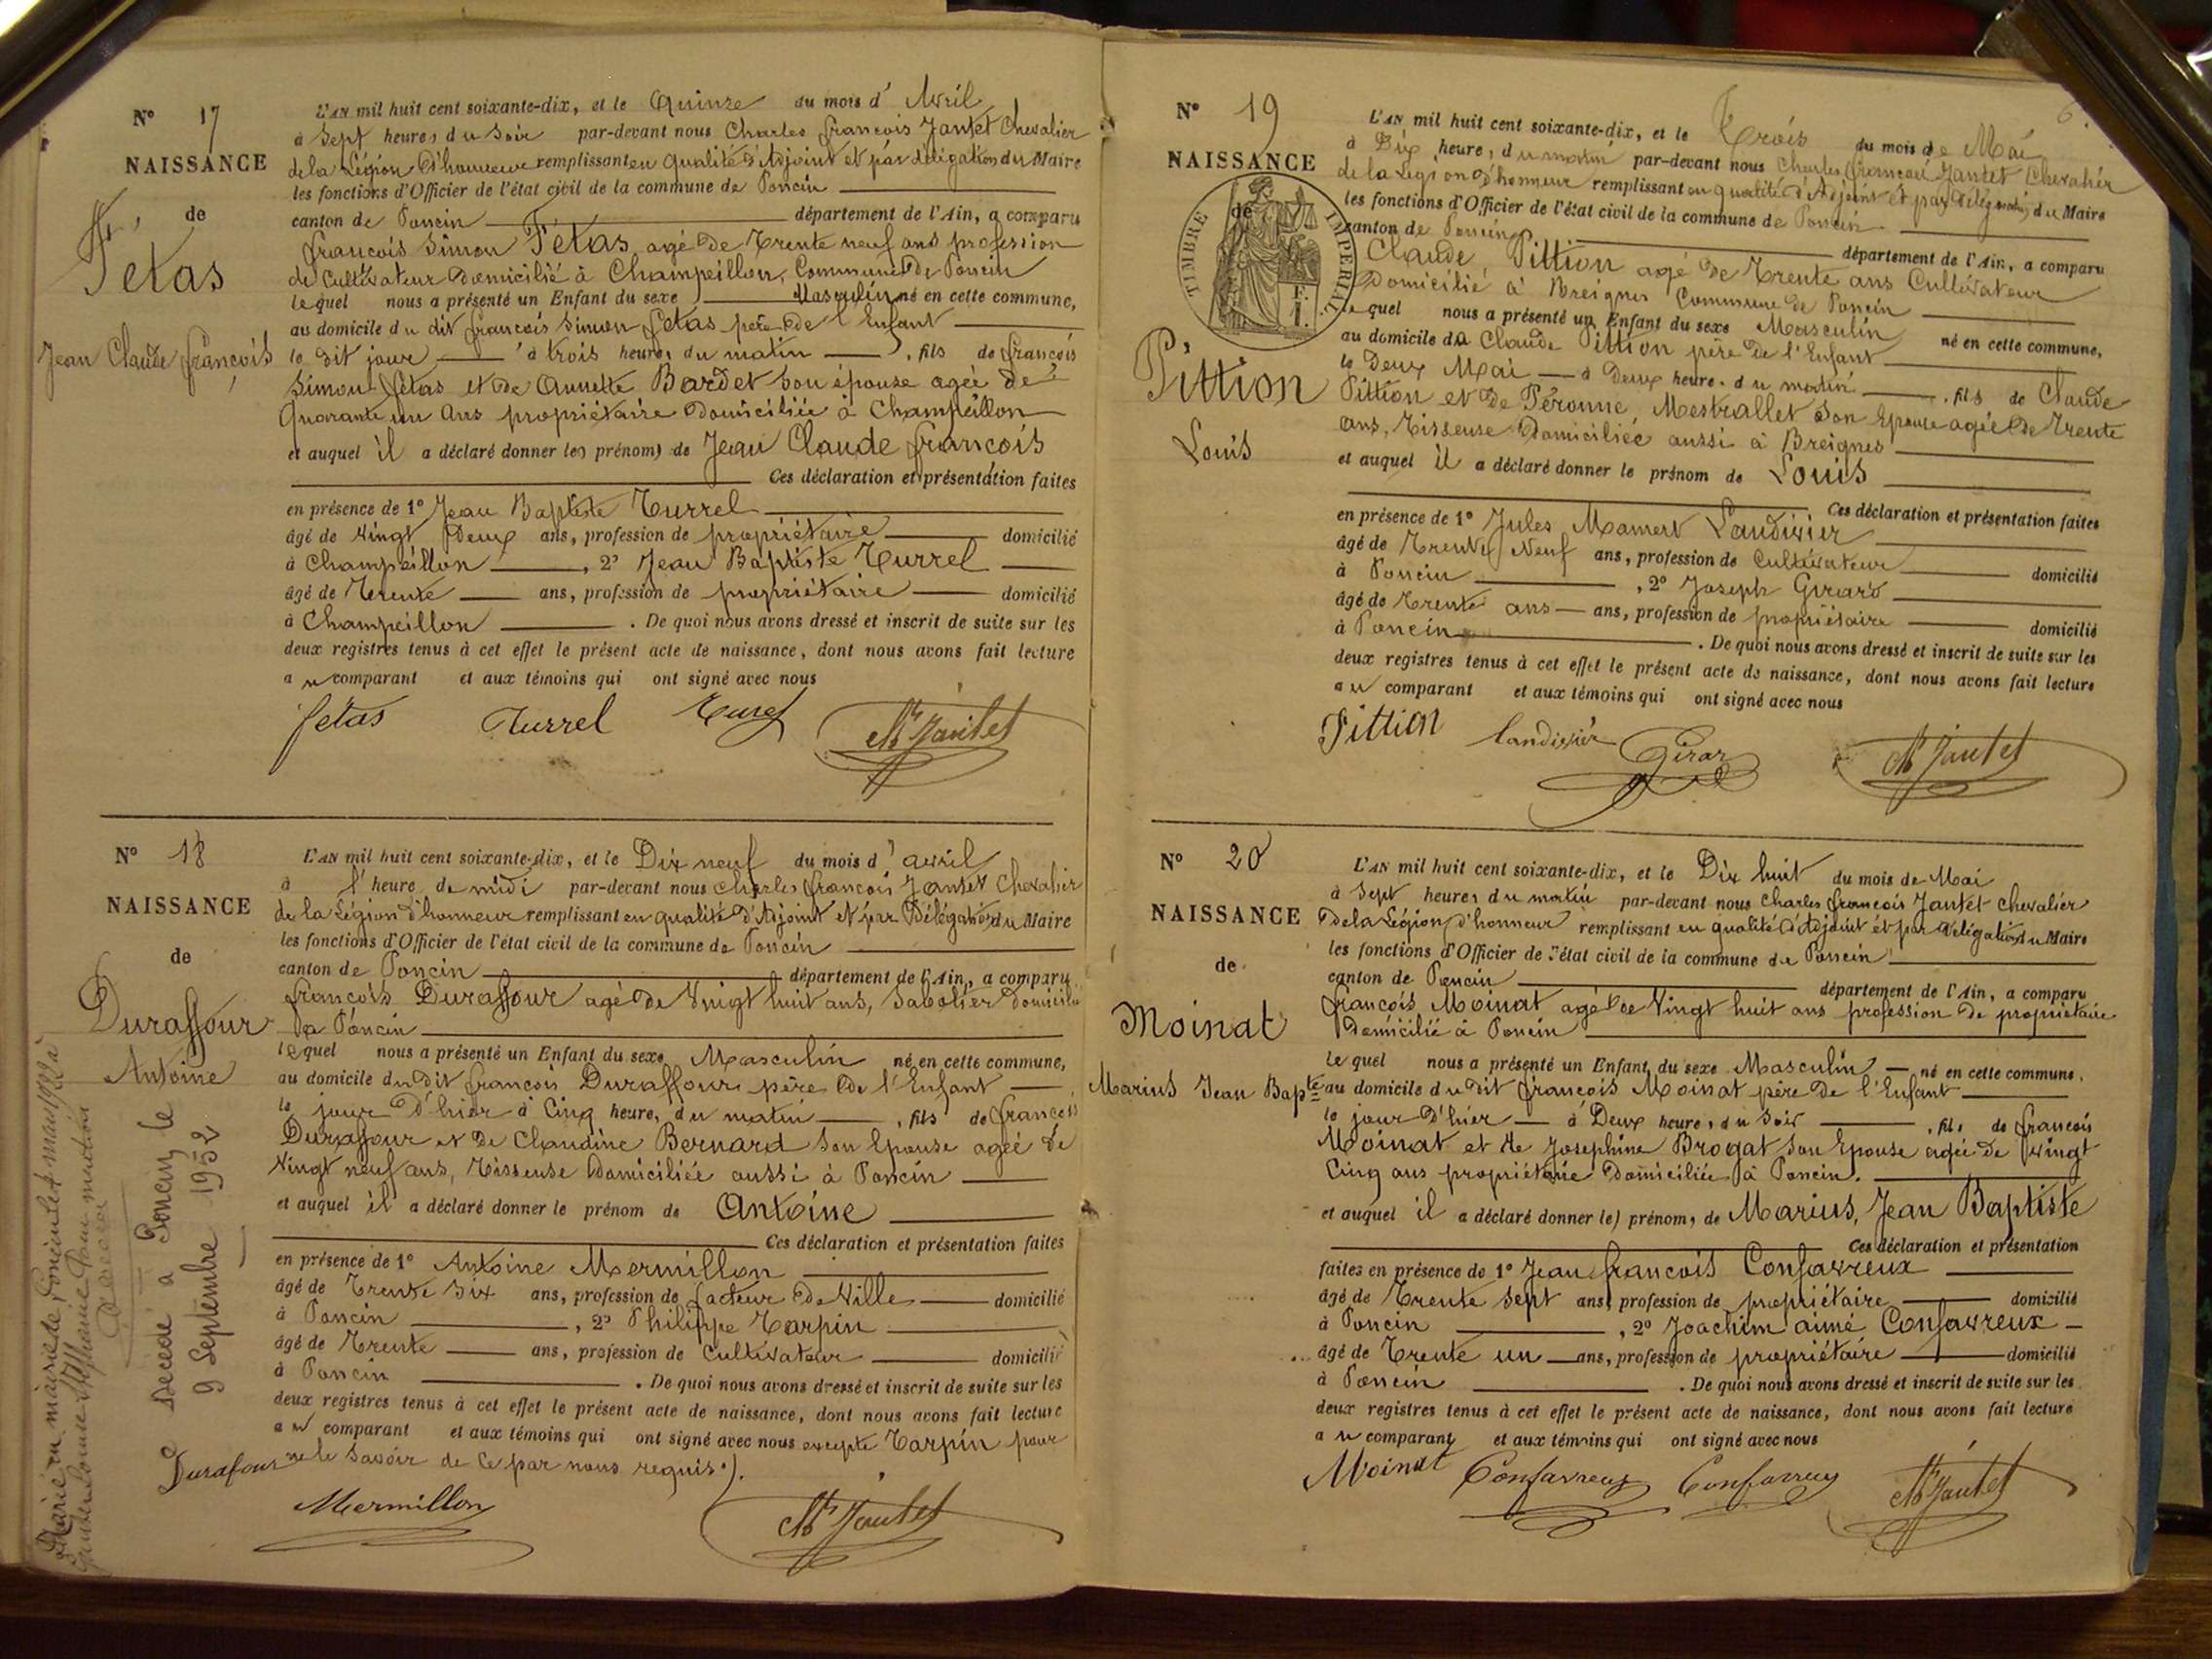 N° 17
NAISSANCE
de
Fétas
Jean Claude françois
L'AN mil huit cent soixante-dix, et le Quinze du mois d' Avril
à Sept heures du Soir par-devant nous Charles françois Jantet Chevalier
de la Légion d'honneur remplissant en qualité d'Adjoint et par délégation du Maire
les fonctions d'Officier de l'état civil de la commune de Poncin
canton de Poncin département de l'Ain, a comparu
françois Simon Fétas agé de Trente neuf ans profession
de Cultivateur domicilié à Champeillon, Commune de Poncin
lequel nous a présenté un Enfant du sexe Masculin né en cette commune,
au domicile du dit françois Simon fétas père de l'Enfant
le dit jour à trois heures du matin, fils de françois
Simon fétas et de Annette Bardet son épouse agée de
Quarante un ans propriétaire domiciliée à Champeillon
et auquel il a déclaré donner les prénoms de Jean Claude françois
Ces déclaration et présentation faites
en présence de 1° Jean Baptiste Turrel
âgé de vingt Deux ans, profession de propriétaire domicilié
à Champeillon, 2° Jean Baptiste Turrel
âgé de Trente ans, profession de propriétaire domicilié
à Champeillon. De quoi nous avons dressé et inscrit de suite sur les
deux registres tenus à cet effet le présent acte de naissance, dont nous avons fait lecture
au comparant et aux témoins qui ont signé avec nous
fetas Turrel Turel Ch Jantet
N° 18
NAISSANCE
de
Duraffour
Antoine
Décédé à Poncin, le
9 Septembre 1952
L'AN mil huit cent soixante-dix, et le Dix neuf du mois d' avril
à l'heure de midi par-devant nous Charles françois Jantet Chevalier
de la Légion d'honneur remplissant en qualité d'Adjoint et par Délégation du Maire
les fonctions d'Officier de l'état civil de la commune de Poncin
canton de Poncin département de l'Ain, a comparu
françois Duraffour agé de Vingt huit ans, Sabotier domicilié
à Poncin
lequel nous a présenté un Enfant du sexe Masculin né en cette commune,
au domicile du dit françois Duraffour père de l'Enfant
le jour d'hier à Cinq heures du matin, fils de françois
Duraffour et de Claudine Bernard son Epouse agée de
Vingt neuf ans, Tisseuse domiciliée aussi à Poncin
et auquel il a déclaré donner le prénom de Antoine
Ces déclaration et présentation faites
en présence de 1° Antoine Mermillon
âgé de Trente Six ans, profession de facteur de Ville domicilié
à Poncin, 2° Philippe Tarpin
âgé de Trente ans, profession de Cultivateur domicilié
à Poncin. De quoi nous avons dressé et inscrit de suite sur les
deux registres tenus à cet effet le présent acte de naissance, dont nous avons fait lecture
au comparant et aux témoins qui ont signé avec nous excepté Tarpin pour
ne le savoir de ce par nous requis.
Durafour
Mermillon Ch Jantet
6.
N° 19
NAISSANCE
de
TIMBRE IMPERIAL
Pittion
Louis
L'AN mil huit cent soixante-dix, et le Trois du mois de Mai
à Dix heures du matin par-devant nous Charles françois Jantet Chevalier
de la Légion d'honneur remplissant en qualité d'Adjoint et par délégation du Maire
les fonctions d'Officier de l'état civil de la commune de Poncin
canton de Poncin département de l'Ain, a comparu
Claude Pittion agé de Trente ans Cultivateur
Domicilié à Breignes Commune de Poncin
lequel nous a présenté un Enfant du sexe Masculin né en cette commune,
au domicile de Claude Pittion père de l'Enfant
le Deux Mai à Deux heures du matin, fils de Claude
Pittion et de Péronne Mestrallet son Epouse agée de Trente
ans, Tisseuse Domiciliée aussi à Breignes
et auquel il a déclaré donner le prénom de Louis
Ces déclaration et présentation faites
en présence de 1° Jules Mamert Landivier
âgé de Trente Neuf ans, profession de Cultivateur domicilié
à Poncin, 2° Joseph Girard
âgé de Trente ans ans, profession de propriétaire domicilié
à Poncin. De quoi nous avons dressé et inscrit de suite sur les
deux registres tenus à cet effet le présent acte de naissance, dont nous avons fait lecture
au comparant et aux témoins qui ont signé avec nous
Pittion Landivier Girar Ch Jantet
N° 20
NAISSANCE
de
Moinat
Marius Jean Bapte
L'AN mil huit cent soixante-dix, et le Dix huit du mois de Mai
à Sept heures du matin par-devant nous Charles françois Jantet Chevalier
de la Légion d'honneur remplissant en qualité d'Adjoint et par délégation du Maire
les fonctions d'Officier de l'état civil de la commune de Poncin
canton de Poncin département de l'Ain, a comparu
françois Moinat agé de Vingt huit ans profession de propriétaire
Domicilié à Poncin
lequel nous a présenté un Enfant du sexe Masculin né en cette commune,
au domicile du dit françois Moinat père de l'Enfant
le jour d'hier à Deux heures du Soir, fils de françois
Moinat et de Josephine Brogat son Epouse agée de Vingt
Cinq ans propriétaire Domiciliée à Poncin.
et auquel il a déclaré donner les prénoms de Marius, Jean Baptiste
Ces déclaration et présentation
faites en présence de 1° Jean françois Confavreux
âgé de Trente Sept ans, profession de propriétaire domicilié
à Poncin, 2° Joachim aimé Confavreux
âgé de Trente un ans, profession de propriétaire domicilié
à Poncin. De quoi nous avons dressé et inscrit de suite sur les
deux registres tenus à cet effet le présent acte de naissance, dont nous avons fait lecture
au comparant et aux témoins qui ont signé avec nous
Moinat Confavreux Confavreux Ch Jantet